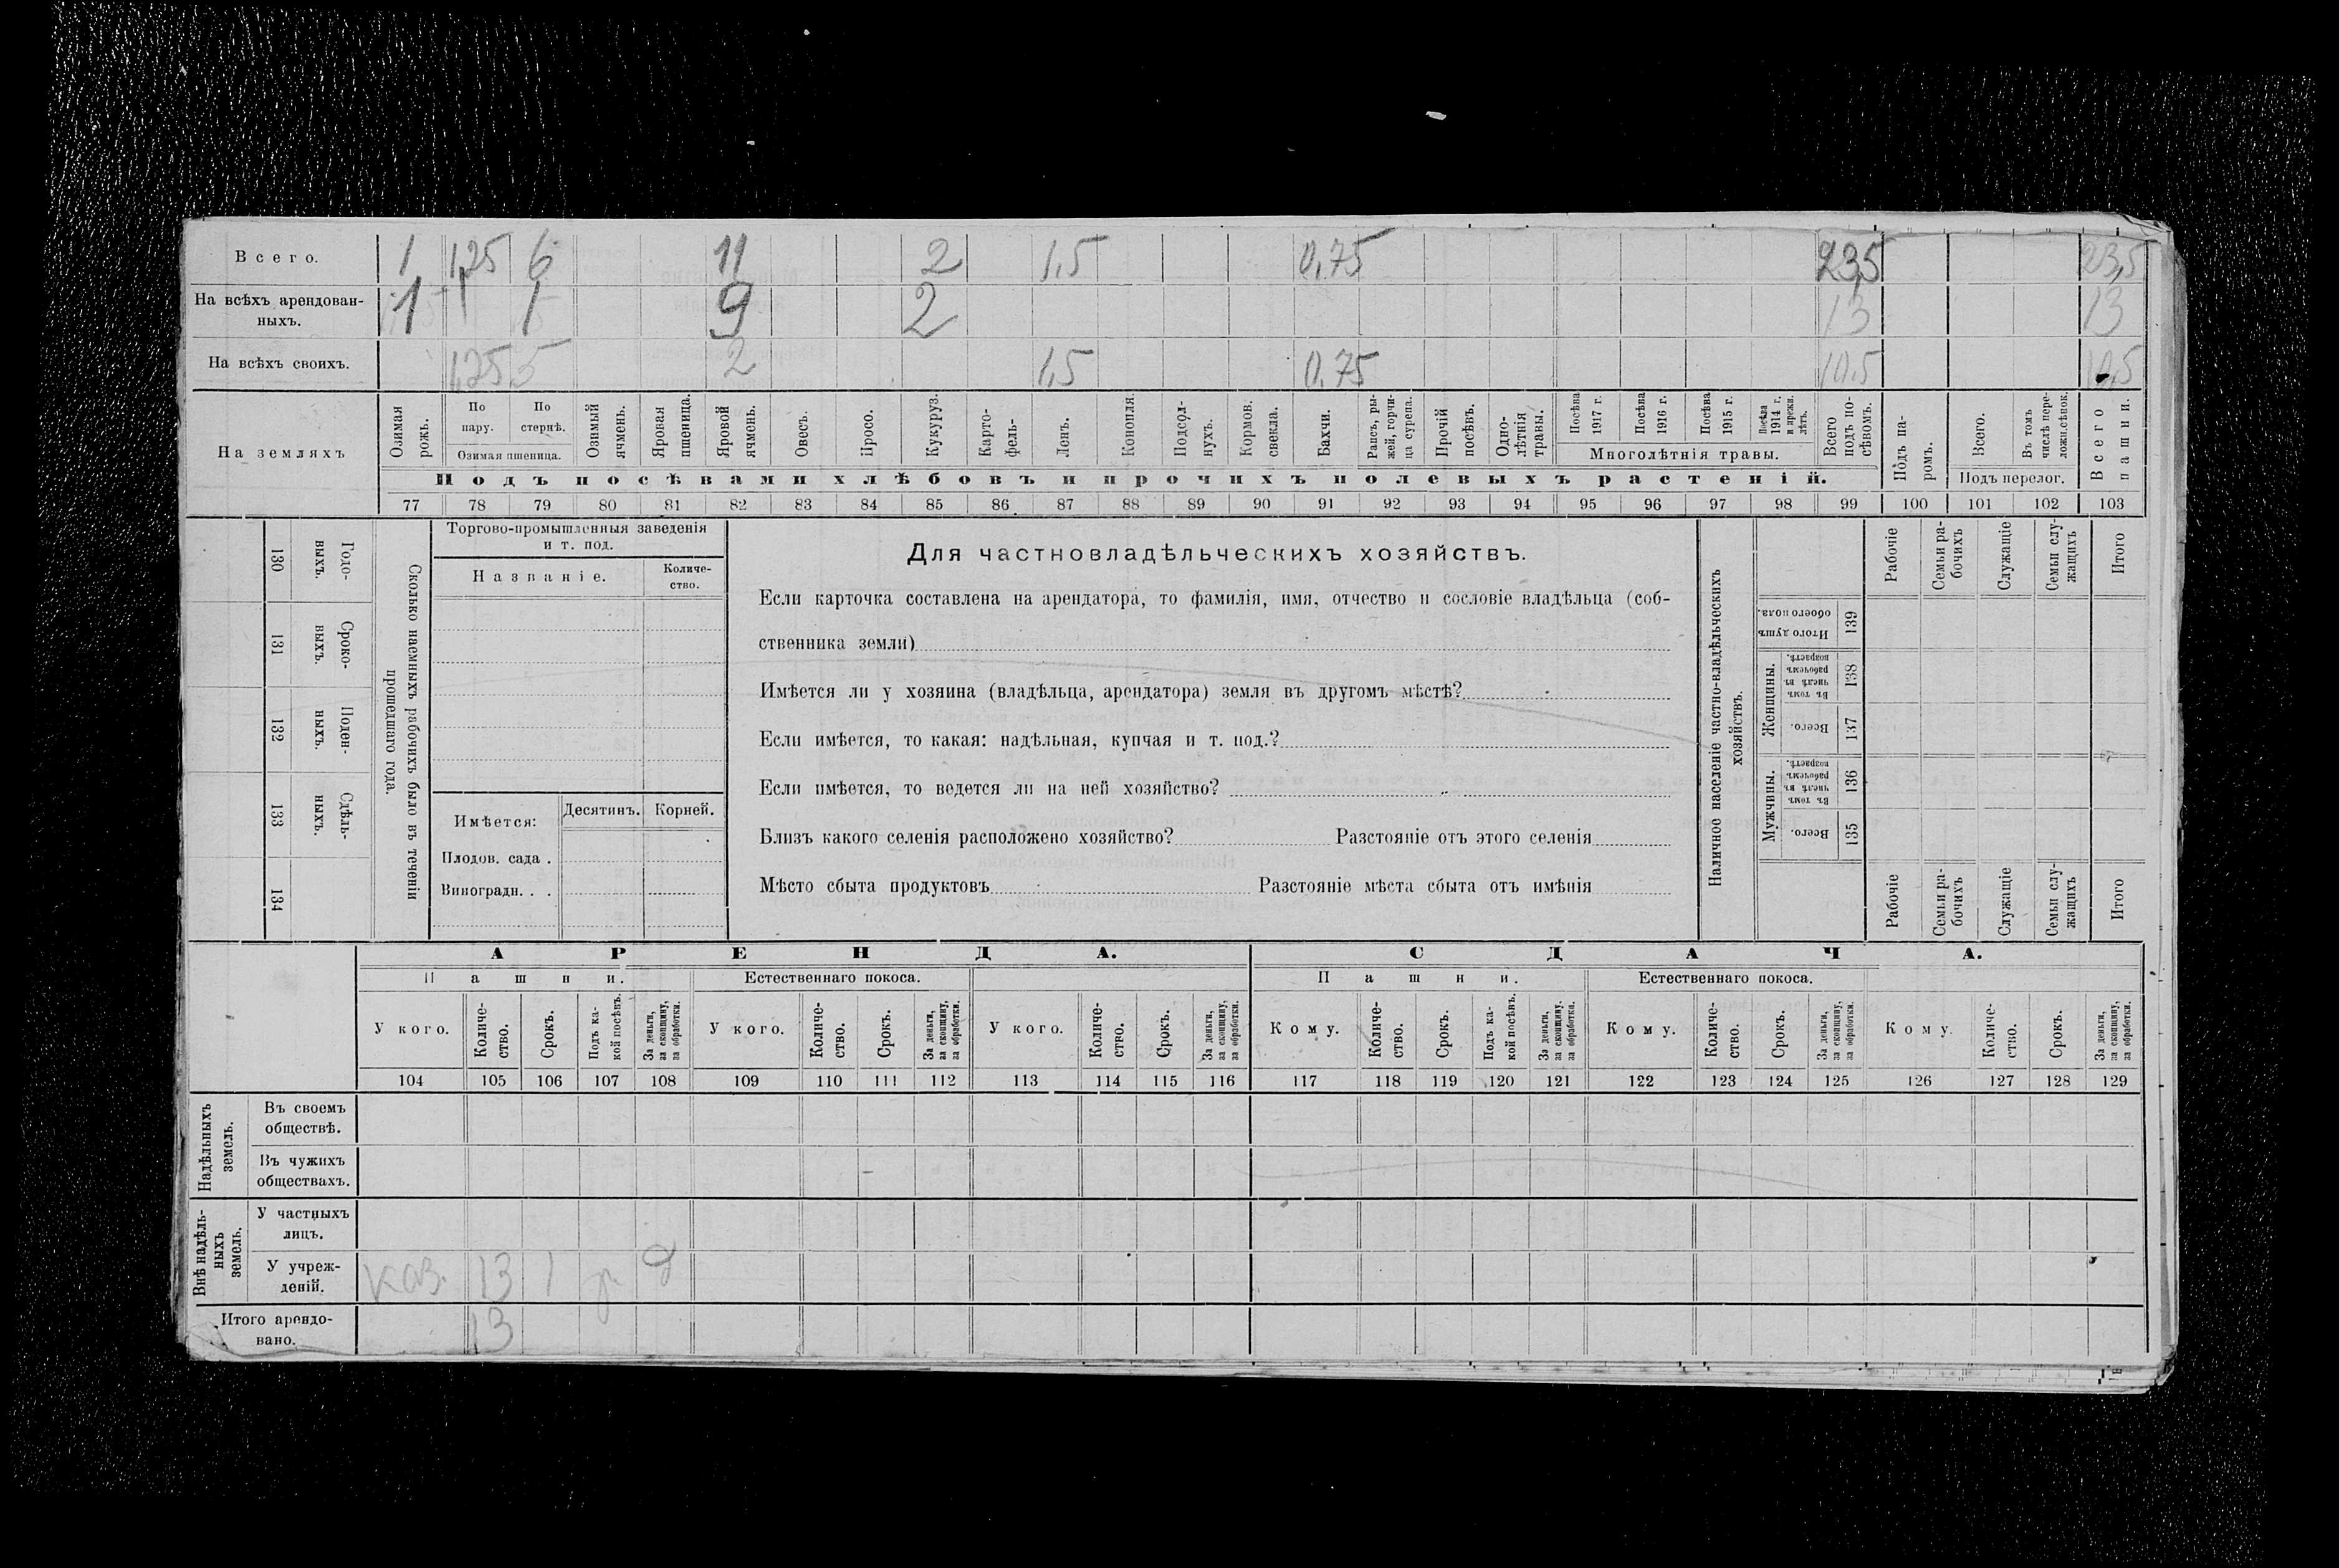 Всего. 1 1,25 6 11 2 1,5 0,75 23,5 23,5
На всѣхъ арендован-
ныхъ. 1 1 1 9 2 13 13
На всѣхъ своихъ. 1,25 5 2 1,5 0,75 10,5 10,5
На земляхъ
Озимая рожь.
По пару.
По стернѣ.
Озимая пшеница.
Озимый ячмень.
Яровая пшеница.
Яровой ячмень.
Овесъ.
Просо.
Кукуруз.
Карто-
фель-
Ленъ.
Конопля.
Подсол-
нухъ.
Кормов.
свекла.
Бахчи.
Рапсъ, ры-
жей, горчи-
ца сурепа.
Прочій посѣвъ.
Одно-
лѣтнія травы.
Посѣва 1917 г.
Посѣва 1916 г.
Посѣва 1915 г.
Посѣва 1914 г. и прежн. лѣтъ.
Многолѣтнія травы.
Всего подъ по-
сѣвомъ.
Подъ посѣвами хлѣбовъ и прочихъ полевыхъ растеній.
Подъ па-
ромъ.
Всего.
Въ томъ числѣ пере-
ложн.сѣнок.
Подъ перелог.
Всего пашни.
77 78 79 80 81 82 83 84 85 86 87 88 89 90 91 92 93 94 95 96 97 98 99 100 101 102 103
130 Годо-
выхъ.
131 Сроко-
выхъ.
132 Поден-
ныхъ.
133 Сдѣль-
ныхъ.
134
Сколько наемныхъ рабочихъ было въ теченіи
прошедшаго года.
Торгово-промышленныя заведенія
и т. под.
Названіе.
Количе-
ство.
Имѣется:
Десятинъ. Корней.
Плодов. сада .
Виноградн. . .
Для частновладѣльческихъ хозяйствъ.
Если карточка составлена на арендатора, то фамилія, имя, отчество и сословіе владѣльца (соб-
ственника земли)
Имѣется ли у хозяина (владѣльца, арендатора) земля въ другомъ мѣстѣ?
Если имѣется, то какая: надѣльная, купчая и т. под.?
Если имѣется, то ведется ли на ней хозяйство?
Близъ какого селенія расположено хозяйство? Разстояніе отъ этого селенія
Мѣсто сбыта продуктовъ Разстояніе мѣста сбыта отъ имѣнія
Наличное населеніе частно-владѣльческихъ
хозяйствъ.
Итого душъ обоего пола. 139
Женщины.
Въ томъ числѣ въ рабочемъ возрастѣ. 138
Всего. 137
Мужчины.
Въ томъ числѣ въ рабочемъ возрастѣ. 136
Всего. 135
Рабочіе
Семьи ра-
бочихъ
Служащіе
Семьи слу-
жащихъ
Итого
Рабочіе
Семьи ра-
бочихъ
Служащіе
Семьи слу-
жащихъ
Итого
АРЕНДА. СДАЧА.
Пашни. Естественнаго покоса. Пашни. Естественнаго покоса.
У кого.
Количе-
ство.
Срокъ.
Подъ ка-
кой посѣвъ.
За деньги, за скопщину, за обработки.
У кого.
Количе-
ство.
Срокъ.
За деньги, за скопщину, за обработки.
У кого.
Количе-
ство.
Срокъ.
За деньги, за скопщину, за обработки.
Кому.
Количе-
ство.
Срокъ.
Подъ ка-
кой посѣвъ.
За деньги, за скопщину, за обработки.
Кому.
Количе-
ство.
Срокъ.
За деньги, за скопщину, за обработки.
Кому.
Количе-
ство.
Срокъ.
За деньги, за скопщину, за обработки.
104 105 106 107 108 109 110 111 112 113 114 115 116 117 118 119 120 121 122 123 124 125 126 127 128 129
Надѣльныхъ
земель.
Въ своемъ
обществѣ.
Въ чужихъ
обществахъ.
Внѣ надѣль-
ныхъ
земель.
У частныхъ
лицъ.
У учреж-
деній. каз. 13 1 д
Итого арендо-
вано. 13